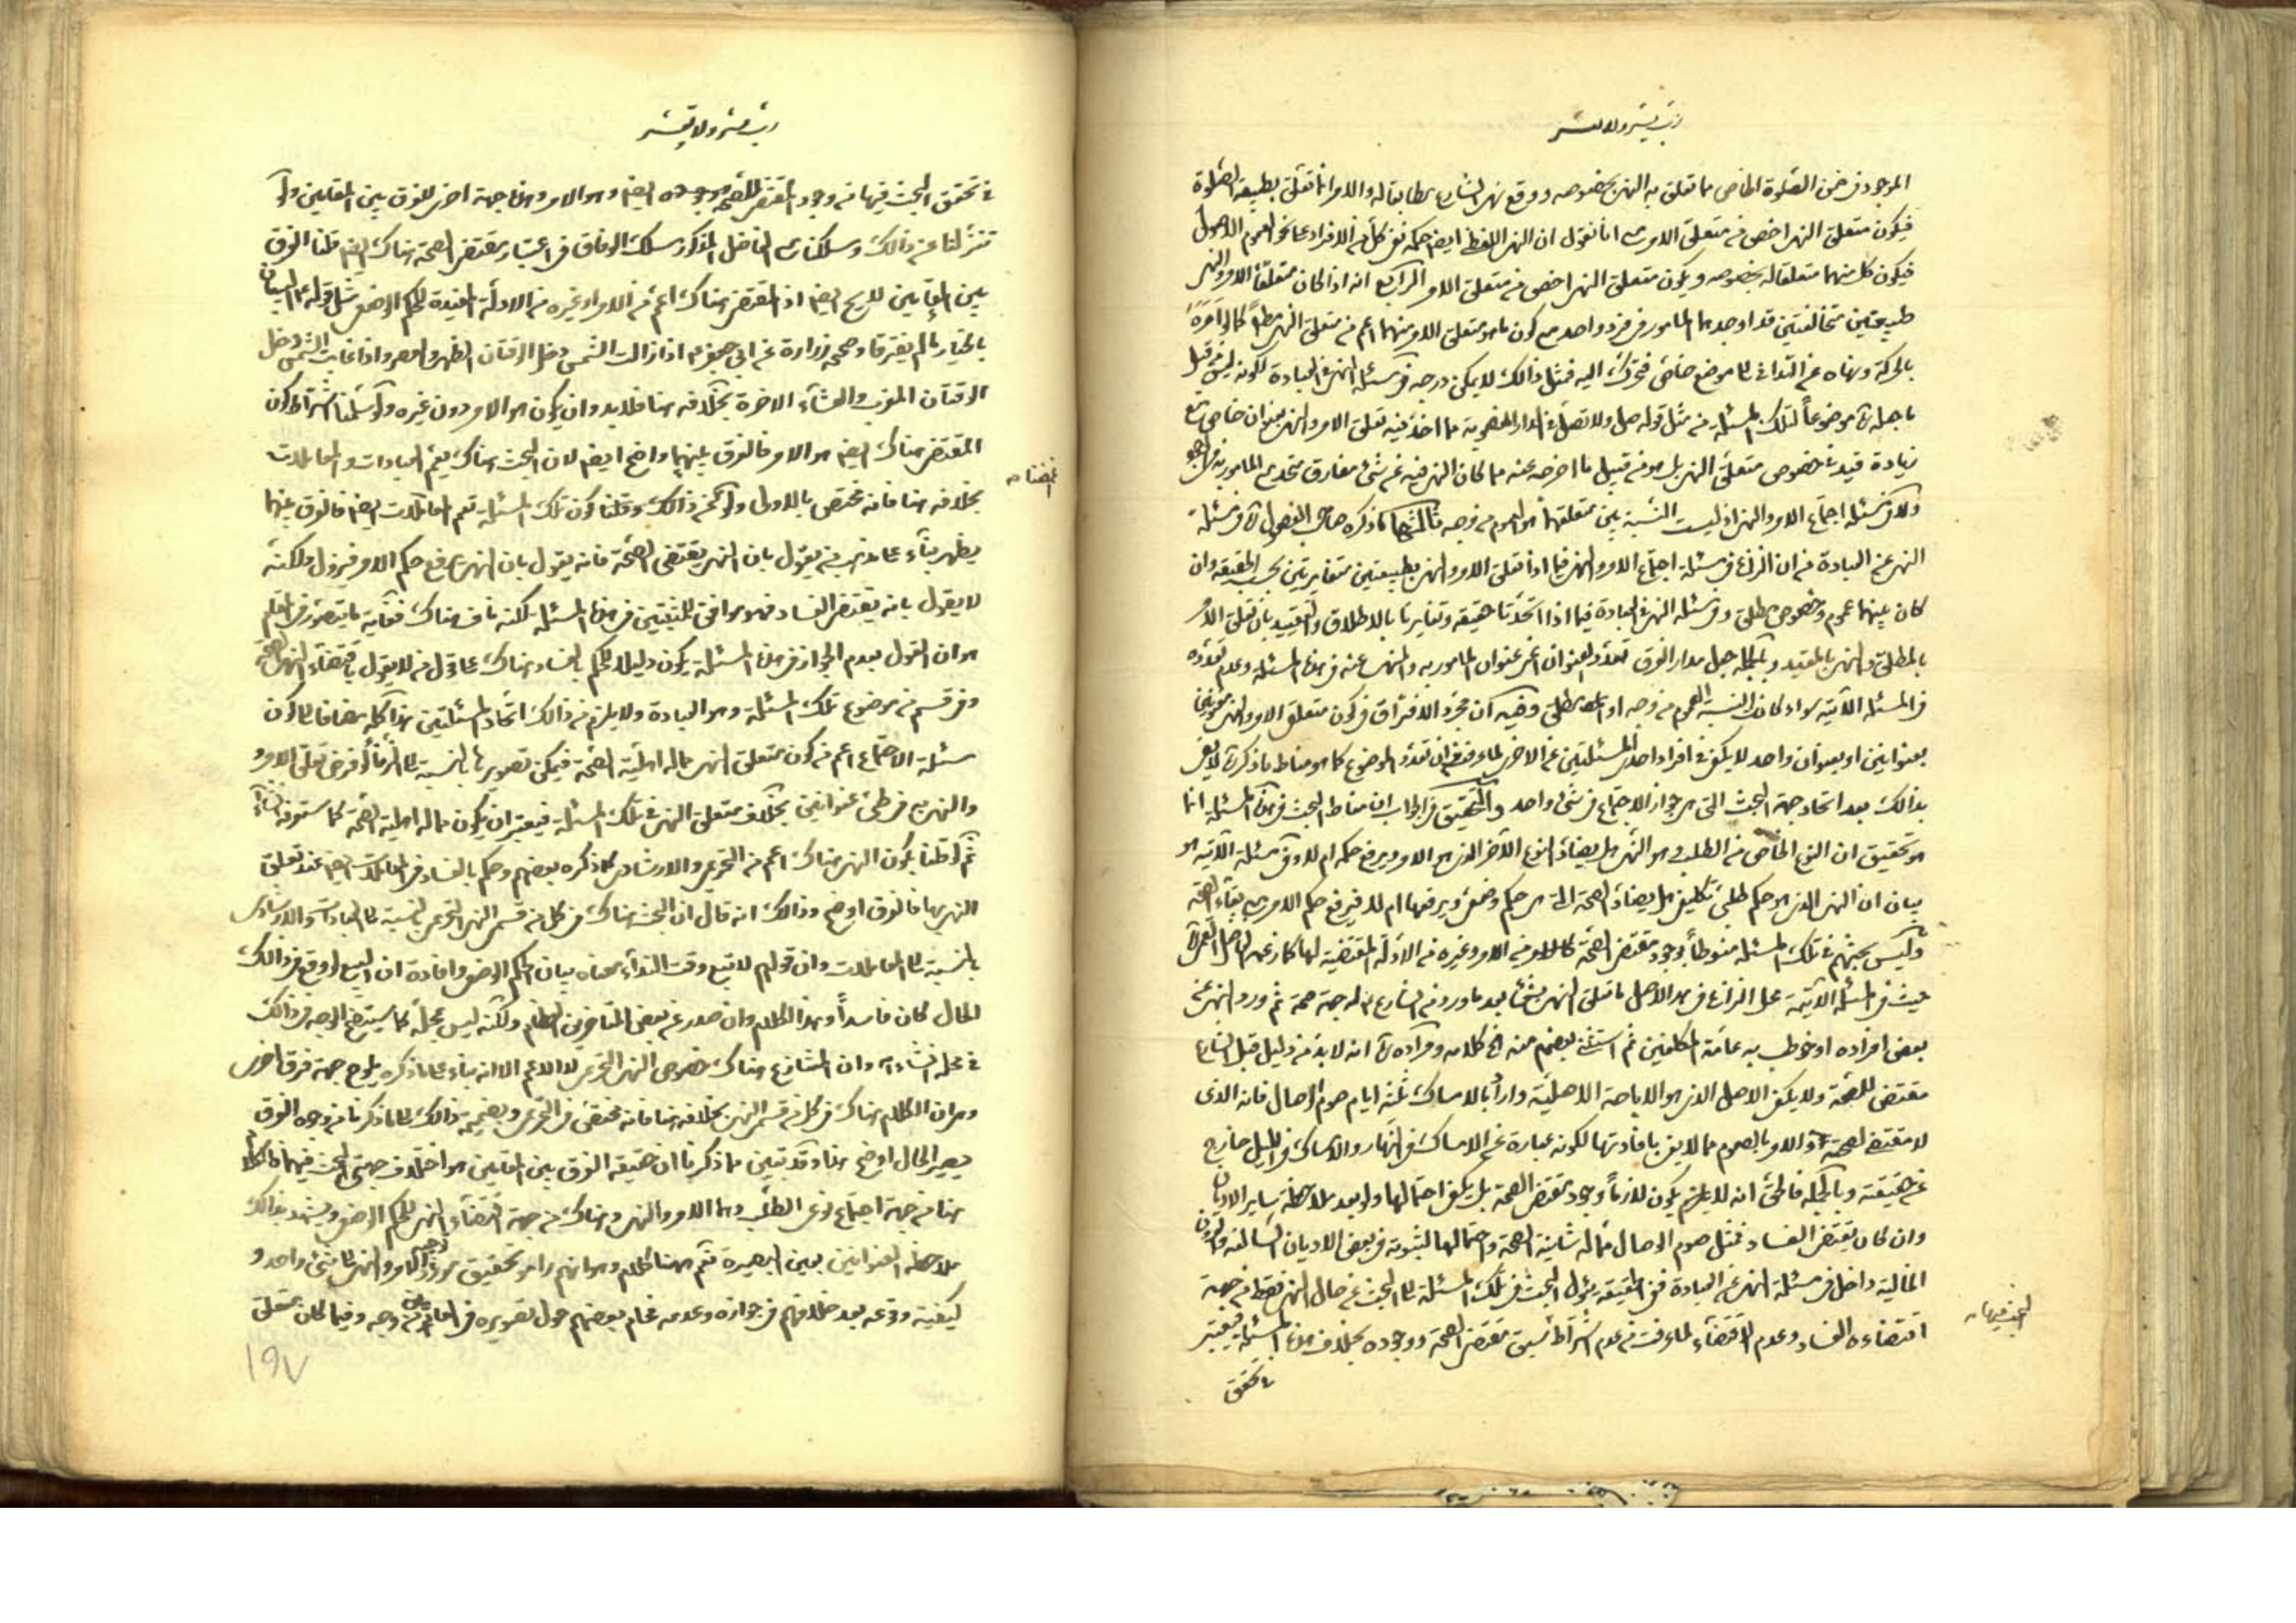 رب يسر ولا تعسر
الموجود في ضمن الصلوة الخاص مما تعلق به النهي بخصوصه ووقع نهي الشارع مطابقا له والامر انما تعلق بطبيعة الصلوة
فيكون متعلق النهي اخص من متعلق الامر مع انا نقول ان النهي اللفظي ايضا حكمه نفي كل من الافراد على نحو العموم الاصولي
فيكون كل منهما متعلقا له بخصوصه ويكون متعلق النهي اخص من متعلق الامر الرابع انه اذا كان متعلقا الامر والنهي
طبيعتين متخالفتين قد اوجدهما المامور في فرد واحد مع كون ما هو متعلق الامر منهما اعم من متعلق النهي مطلقا كما لو امره
بالحركة ونهاه عن التدانى الى موضع خاص فتحرك اليه فمثل ذلك لا يمكن درجه في مسئلة النهي في العبادة لكونه ليس من قبيل
ما جعلوه موضوعا لتلك المسئلة من مثل قوله صل ولا تصل في الدار المغصوبة مما اخذ فيه تعلق الامر والنهي بعنوان خاص مع
زيادة قيد في خصوص متعلق النهي بل هو من قبيل ما اخرجه عنه مما كان النهي فيه عن شئ مفارق متحد مع المامور به في الوجود
ولا في مسئلة اجتماع الامر والنهي اذ ليست النسبة بين متعلقهما هو العموم من وجه ثالثها ما ذكره صاحب الفصول في مسئلة
النهي عن العبادة من ان النزاع في مسئلة اجتماع الامر والنهي فيما اذا تعلق الامر والنهي بطبيعتين متغايرتين بحسب الحقيقة وان
كان بينهما عموم وخصوص مطلق وفي مسئلة النهي في العبادة فيما اذا اتحدتا حقيقة وتغايرتا بالاطلاق والتقييد بان تعلق الامر
بالمطلق والنهي بالمقيد وبالجملة جعل مدار الفرق تعدد العنوان اعني عنوان المامور به والمنهي عنه في هذه المسئلة وعدم تعدده
في المسئلة الآتية سواء كانت النسبة العموم من وجه او مطلق وفيه ان مجرد الافتراق في كون متعلق الامر والنهي
بعنوانين او بعنوان واحد لا يكفي في افراد احدى المسئلتين عن الاخرى لما عرفت من ان تعدد الموضوع كما هو مناط ما ذكره لا يفي
بذلك بعد اتحاد جهة البحث التي هي جواز الاجتماع في شئ واحد والتحقيق في الجواب ان مناط البحث في هذه المسئلة انما
هو تحقيق ان النوع الخاص من الطلب وهو النهي هل يضاد النوع الآخر الذي هو الامر ويرفع حكمه ام لا وفي مسئلة الآتية هو
بيان ان النهي الذي هو حكم طلبي تكليفي هل يضاد الصحة التي هي حكم وضعي ويرفعها ام لا فيرفع حكم الامر مع بقاء الصحة
وليس بحثهم في تلك المسئلة منوطا بوجود مقتضى الصحة كالامر وغيره من الادلة المقتضية لها كما زعمه الفاضل القمي
حيث في المسئلة الآتية محل النزاع في هذا الاصل ما تعلق النهي بشئ بعد ما ورد من الشارع له جهة صحة ثم ورد النهي عن
بعض افراده او خوطب به عامة المكلفين ثم استثنى بعضهم منه انتهى كلامه ومراده انه لا بد من دليل قبل الشارع
مقتضى للصحة ولا يكفي الاصل الذي هو الاباحة الاصلية واراد بالامساك ثلثة ايام صوم الوصال فانه الذي
لا مقتضى لصحته والامر بالصوم مما لا يفي بافادتها لكونه عبارة عن الامساك في النهار والامساك في الليل خارج
عن حقيقته وبالجملة فالحق انه لا يلزم يكون لازما وجود مقتضى الصحة بل يكفي احتمالها ولو بعد ملاحظة ساير الاديان
وان كان يقتضى الفساد فمثل صوم الوصال مما له شانية الصحة واحتمالها لثبوته في بعض الاديان السالفة والقرون
الخالية داخل في مسئلة النهي عن العبادة ففى الحقيقة يؤل البحث في تلك المسئلة الى البحث عن حال النهي فقط من جهة
اقتضاءه الفساد وعدم الاقتضاء لما عرفت من عدم اشتراط سبق مقتضى الصحة ووجوده بخلاف هذه المسئلة فيعتبر
البحث فيها
في تحقق
رب يسر ولا تعسر
في تحقق البحث فيها من وجود المقتضى للصحة ووجوده ايضا وهو الامر وهذا جهة اخرى للفرق بين المقامين ولو
تنزلنا عن ذلك وسلكنا مع الفاضل المذكور مسلك الوفاق في اعتبار مقتضى الصحة هناك ايضا قلنا الفرق
بين المقامين لايح ايضا اذ المقتضى هناك اعم من الامر او غيره من الادلة المفيدة للحكم الوضعي مثل قوله البيعان
بالخيار ما لم يفترقا وصحيحة زرارة عن ابي جعفر اذا زالت الشمس دخل الوقتان الظهر والعصر واذا غابت الشمس دخل
الوقتان المغرب والعشاء الاخرة بخلافه هنا فلا بد وان يكون هو الامر دون غيره ولو سلمنا اشتراط كون
المقتضى هناك ايضا هو الامر فالفرق بينهما واضح ايضا لان البحث هناك يعم العبادات والمعاملات
بخلافه هنا فانه مختص بالاولى ولو غضنا عن ذلك وقلنا كون تلك المسئلة تعم المعاملات ايضا فالفرق بينهما
يظهر بناء على مذهب من يقول بان النهي يقتضى الصحة فانه يقول بان النهي يرفع حكم الامر فيزول ولكنه
لا يقول بانه يقتضى الفساد فهو موافق للمثبتين في هذه المسئلة لكنه ناف هناك فغاية ما يتصور في المقام
هو ان القول بعدم الجواز في هذه المسئلة يكون دليلا للحكم بالفساد هناك على قول من لا يقول باقتضاء النهي الصحة
وفي قسم من موضوع تلك المسئلة وهو العبادة ولا يلزم من ذلك اتحاد المسئلتين هذا كله مضافا الى كون
مسئلة الاجتماع اعم من كون متعلق النهي مما له اهلية الصحة فيمكن تصويرها بالنسبة الى الزنا لو فرض تعلق الامر
والنهي به في طي عنوانين بخلاف متعلق النهي في تلك المسئلة فيعتبر ان يكون مما له اهلية الصحة كما ستعرفه
ثم لو قلنا بكون النهي هناك اعم من التحريمي والارشادي كما ذكره بعضهم وحكم بالفساد في المعاملات ايضا عند تعلق
النهي بها فالفرق اوضح وذلك انه قال ان البحث هناك في كل من قسمي النهي التحريمي بالنسبة الى العبادات والارشادي
بالنسبة الى المعاملات وان قولهم لا تبع وقت النداء معناه بيان الحكم الوضعي وافادة ان البيع لو وقع في ذلك
الحال كان فاسدا وهذا الكلام وان صدر عن بعض المتاخرين العظام ولكنه ليس بمحله كما سيتضح الوجه في ذلك
في محله انشاءالله وان المتنازع هناك خصوص النهي التحريمي لا الاعم الا انه بناء على ما ذكره يلوح جهة فرق اخرى
وهي ان الكلام هناك في كل من قسمي النهي بخلافه هنا فانه مختص في التحريمي وبضميمة ذلك الى ما ذكرنا من وجوه الفرق
يصير الحال اوضح هذا وقد تبين مما ذكرنا ان حقيقة الفرق بين المقامين هو اختلاف جهتي البحث فيهما
هنا من جهة اجتماع نوعي الطلب وهما الامر والنهي وهناك من جهة اقتضاء النهي للحكم الوضعي ويشهد بذلك
ملاحظة العنوانين بعين البصيرة ثم ههنا كلام وهو انهم راموا تحقيق توجه الامر والنهي الى شئ واحد و
كيفية وقوعه بعد خلافهم في جوازه وعدمه فحام بعضهم حول تصويره في العامين من وجه وفيما كان متعلق
غضنا
١٩٧